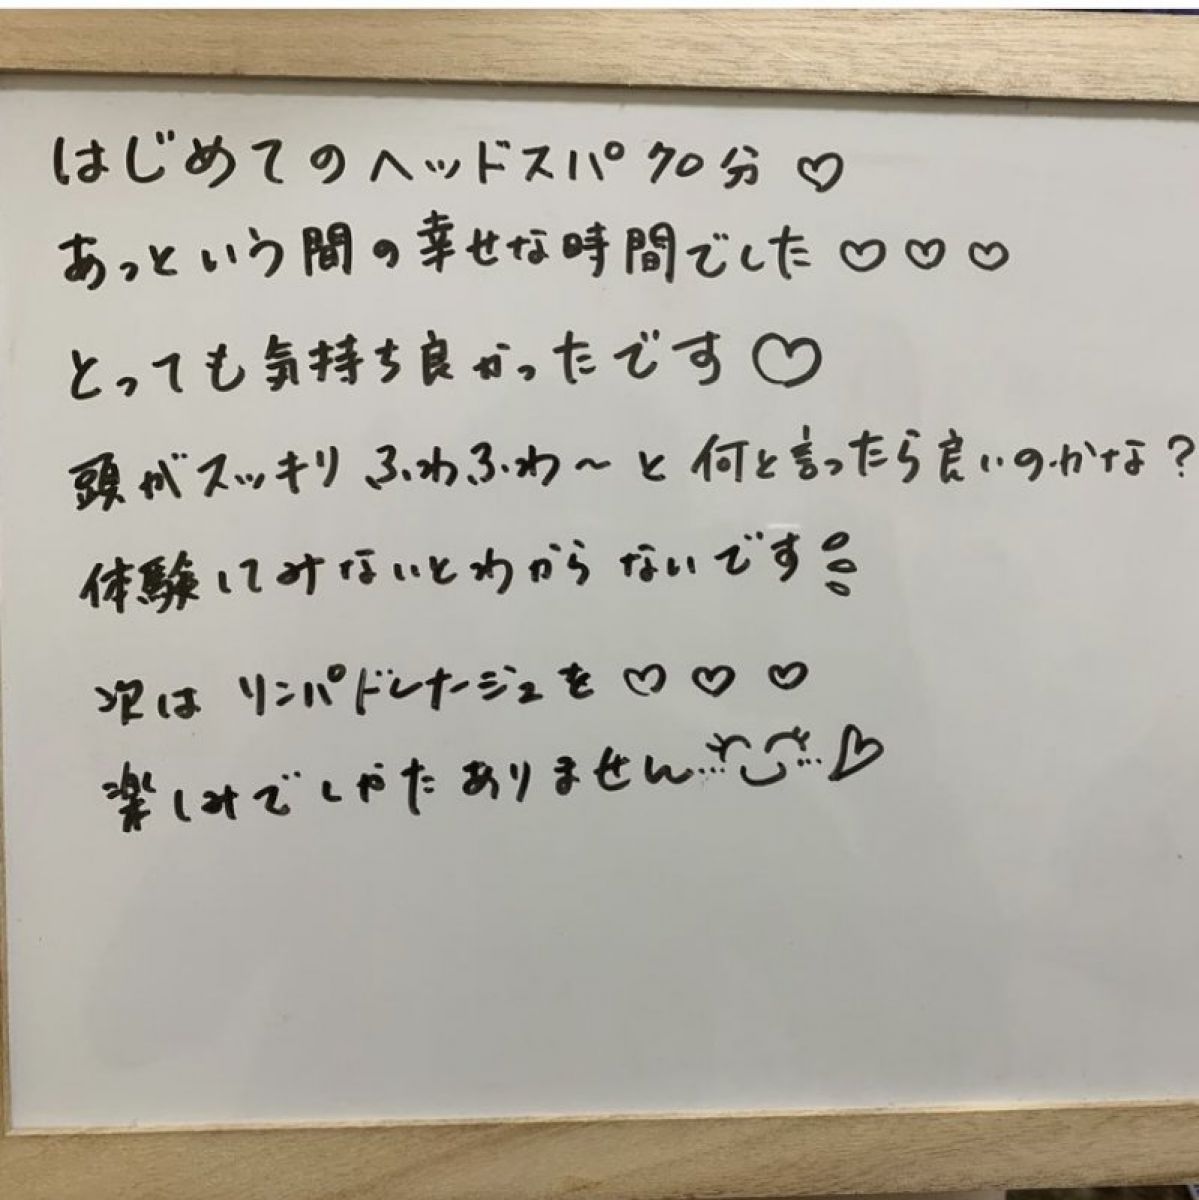 はじめてのヘッドスパ70分♡
あっという間の幸せな時間でした♡♡♡
とっても気持ち良かったです♡
頭がスッキリふわふわ〜と何と言ったら良いのかな?
体験してみないとわからないです
次はリンパドレナージュを♡♡♡
楽しみでしかたありません♡